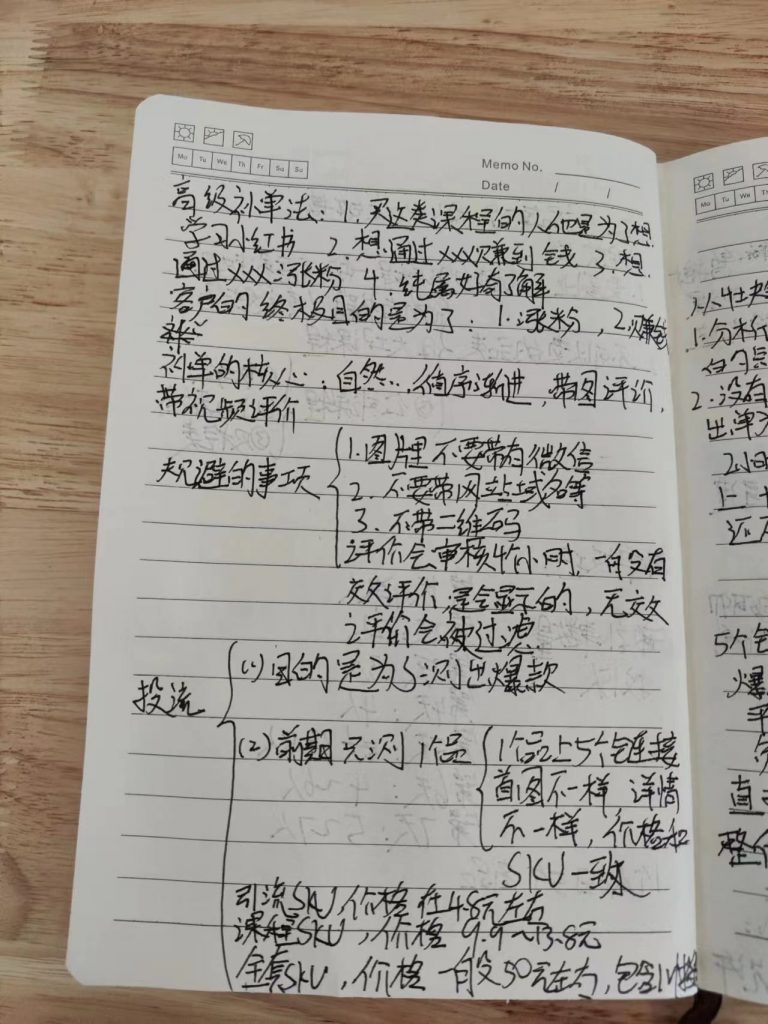 Mo Tu We Th Fr Sa Su
Memo No.
Date / /
高级补单法：1. 买这类课程的人他是为了想
学习小红书 2. 想通过xxx赚到钱 3. 想
通过xxx涨粉 4. 纯属好奇了解
客户的终极目的是为了：1. 涨粉，2. 赚钱
补单的核心：自然…，循序渐进，带图评价，
带视频评价
规避的事项
1. 图片里不要带有微信
2. 不要带网站域名等
3. 不带二维码
评价会审核4个小时，一般没有
效评价，是会显示的，无效
评价会被过滤
投流
(1) 目的是为了测出爆款
(2) 前期只测1个品
1个品上5个链接
首图不一样 详情
不一样，价格和
SKU一致
引流SKU，价格在4.8元左右
课程SKU，价格9.9～13.8元
全套SKU，价格一般50元左右，包含
Mo Tu We Th
1. 分析
2. 没有
出单
2小时
5个
爆
平
直
整个